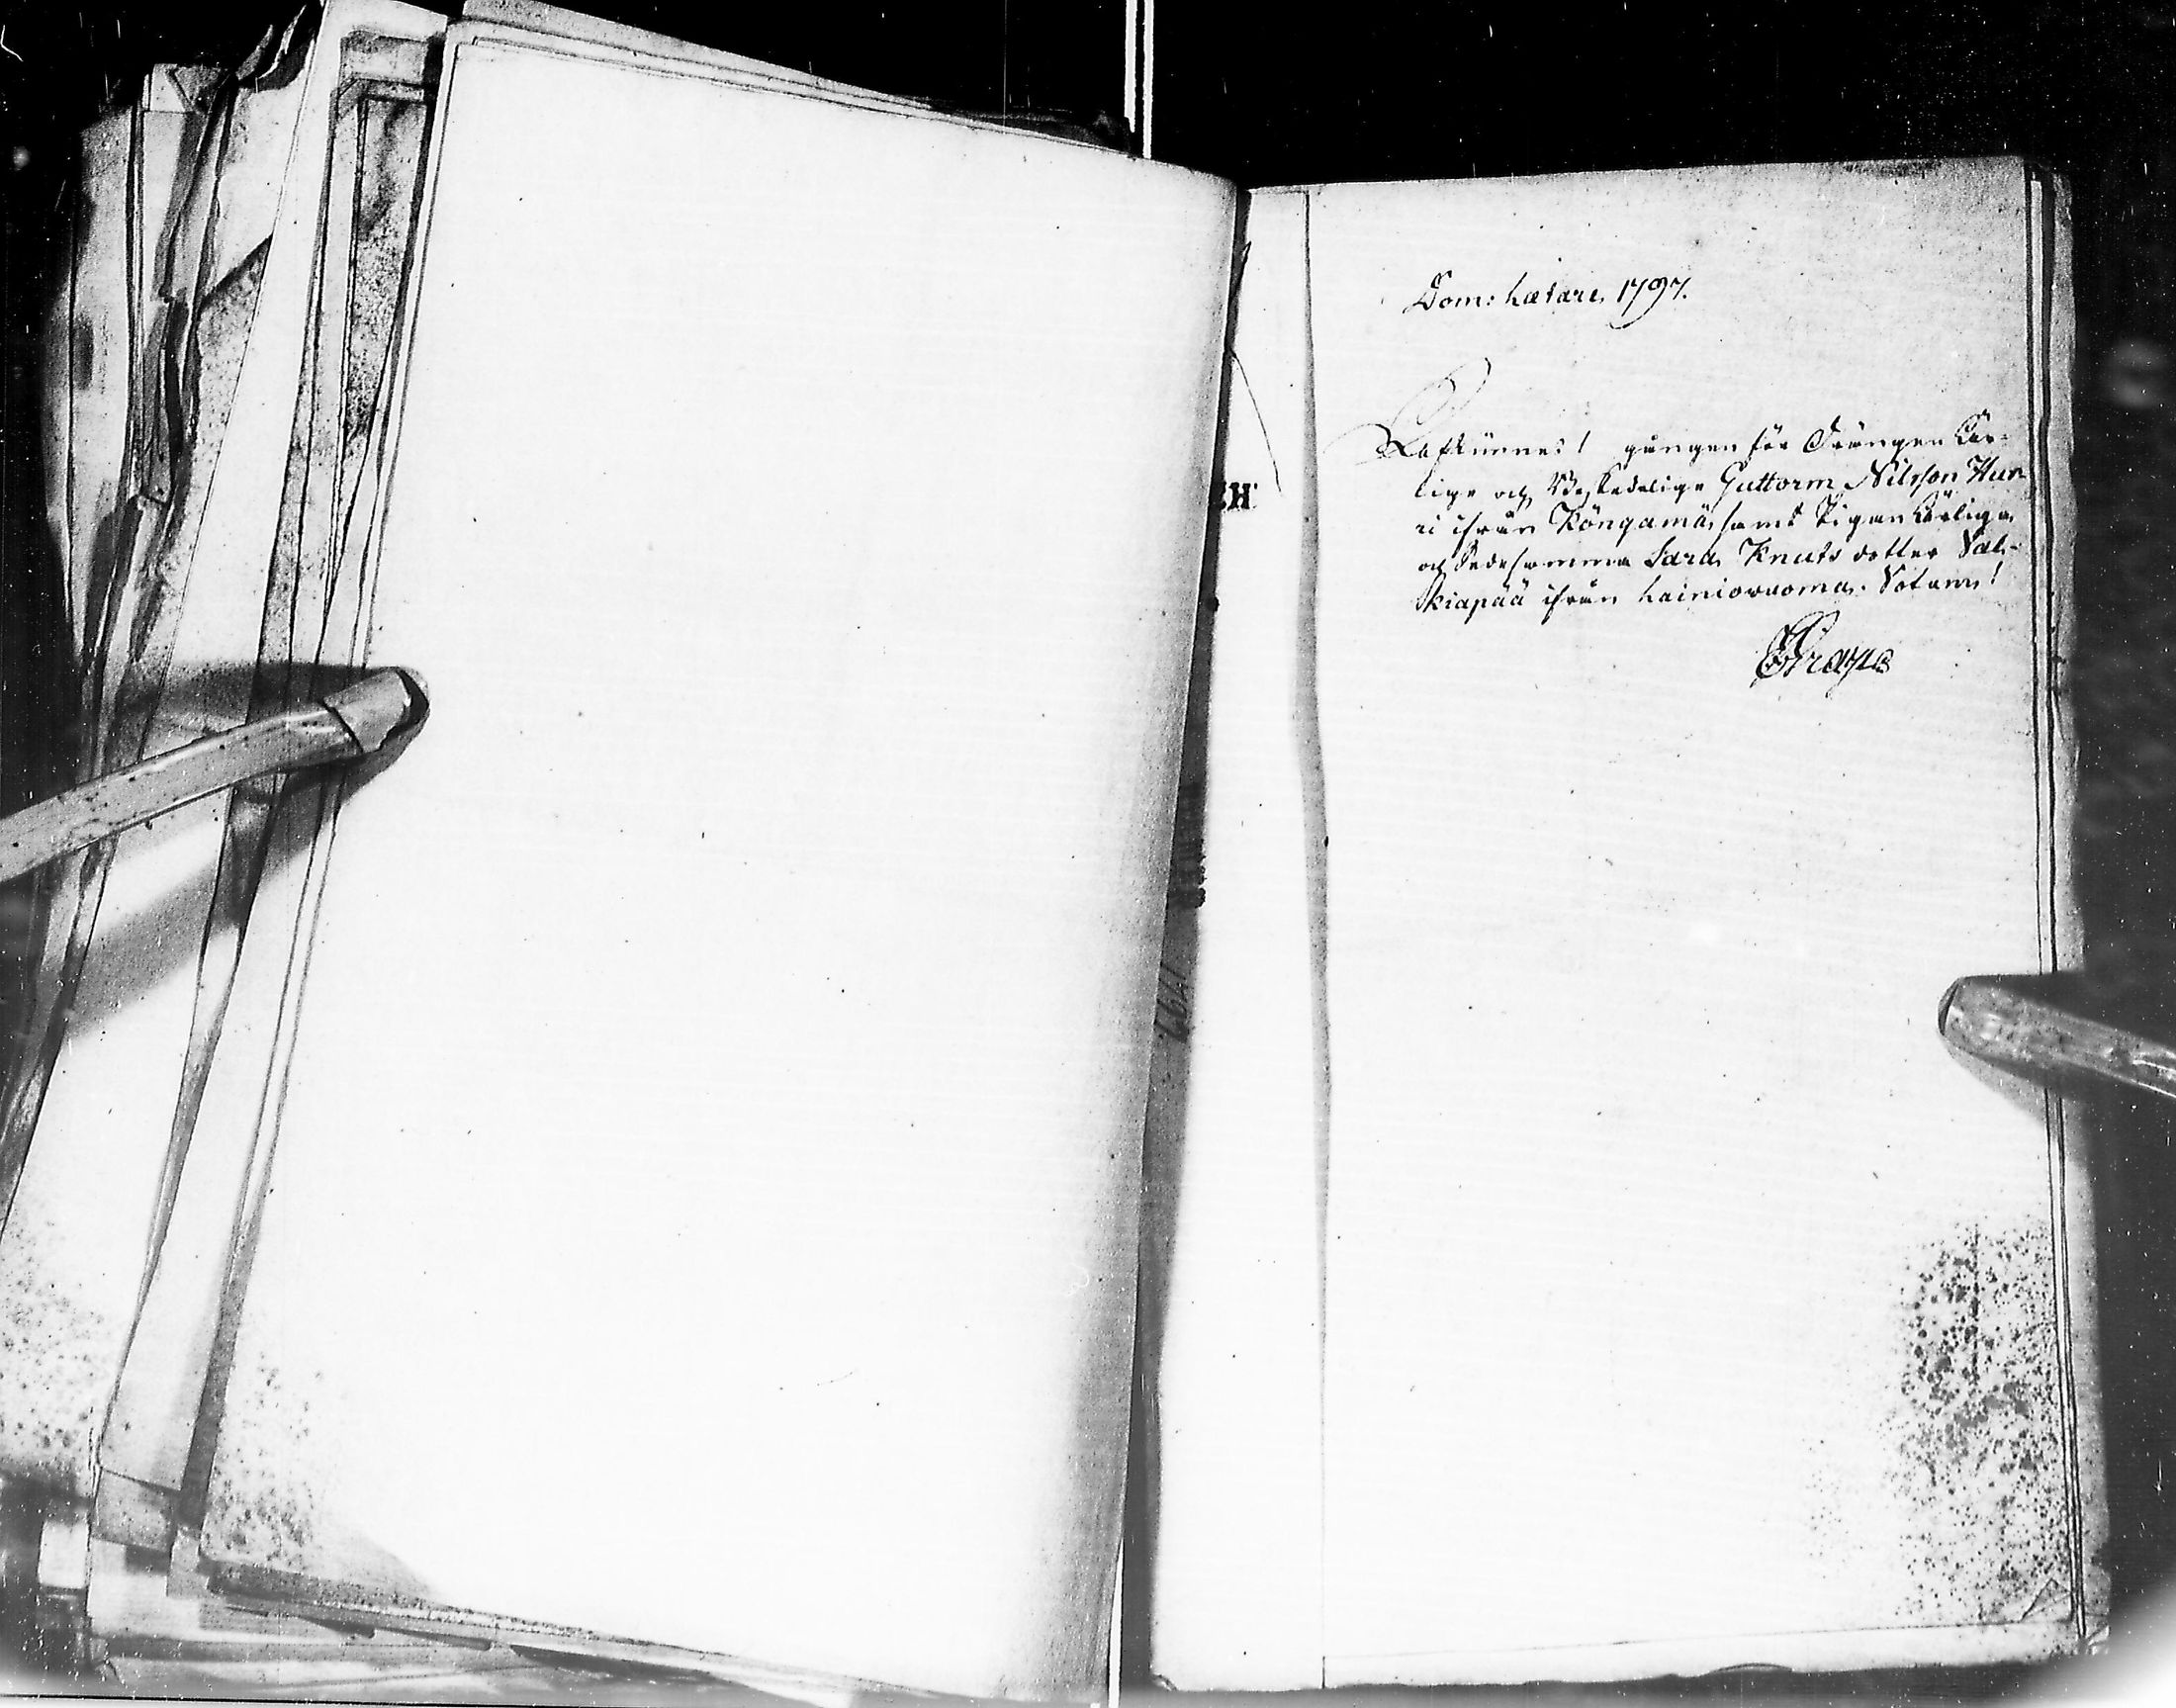 Dom: Lætare 1797.
gången för Drängen Här-
lige och Beskedelige Guttorm Nilsson Hur-
ri ifrån Köngämä samt Pigan Ärliga
och Sedesamma Sara Knuts dotter Val-
kiapää ifrån Lainiovuoma.